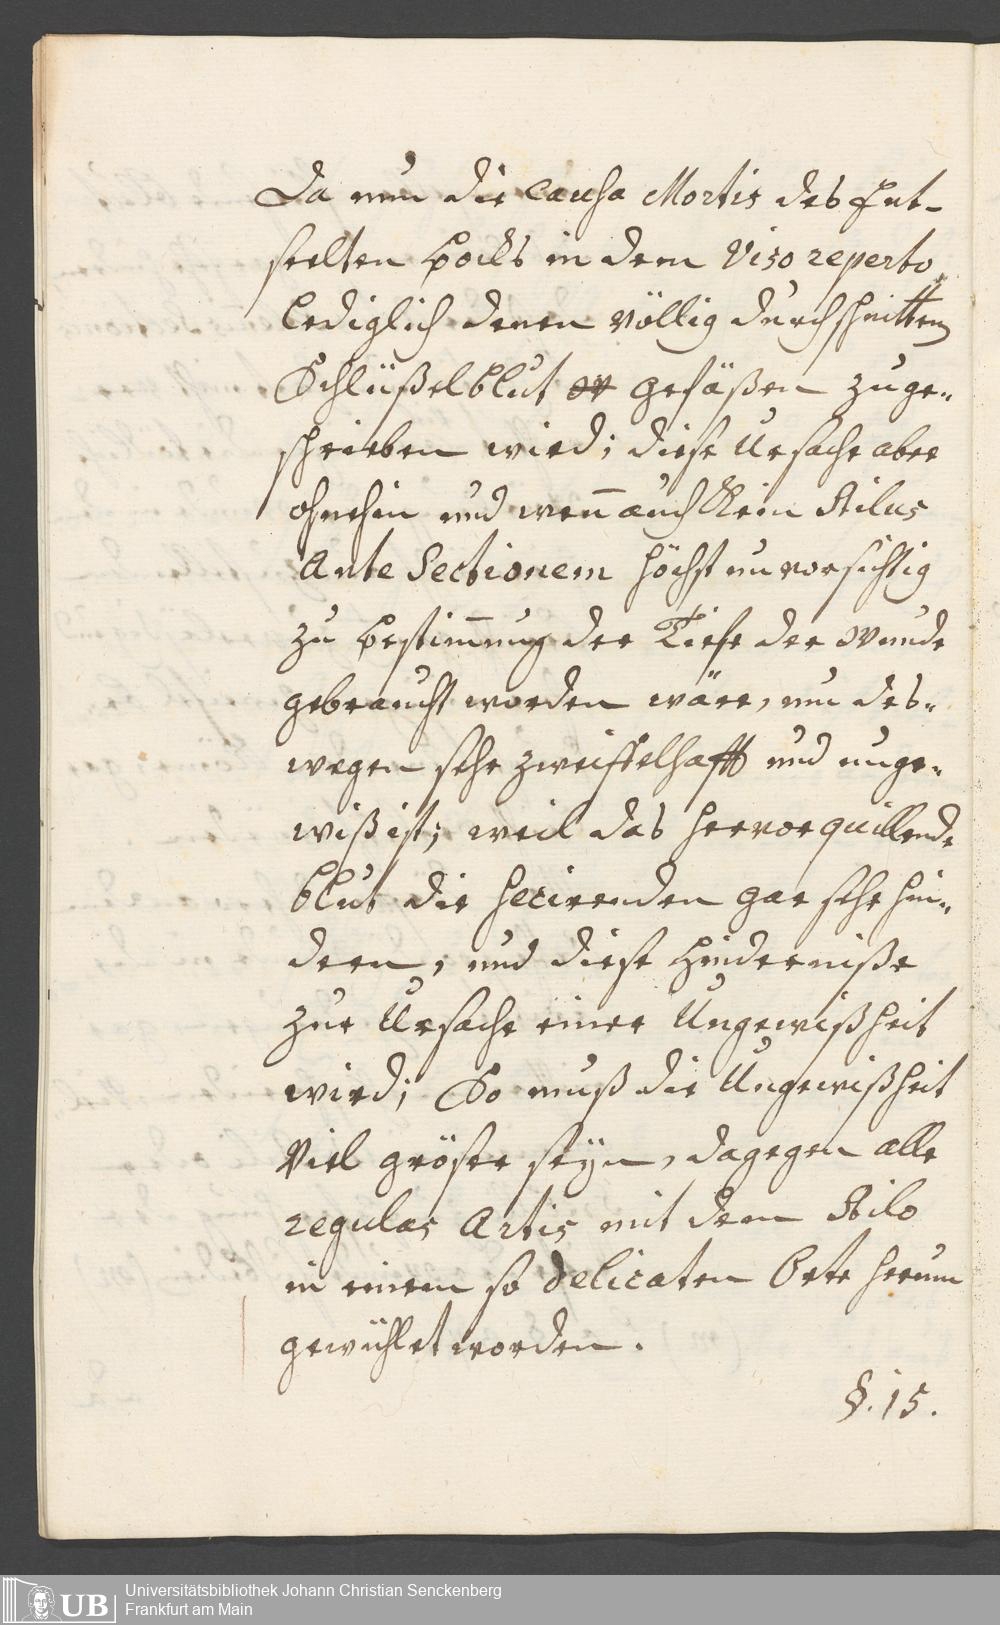 Da nun die Causa Mortis des Ent-
seelten Bocks in dem Viso reperto
lediglich denen völlig durchschnittenen
Schlüßelblut gefäßen zuge-
schrieben wird; diese Ursache aber
ohnehin und weñ auch kein Stilus
Ante Sectionem höchst unvorsichtig
zu bestim̅ung der Tiefe der Wunde
gebraucht worden wäre, um des-
wegen sehr zweiffelhafft und unge-
wiß ist; weil das hervorquillende
blut die Secirenden gar sehr hin-
dern, und diese Hinderniße
zur Ursache einer Ungewißheit
wird; So muß die Ungewißheit
Viel gröser seÿn, da gegen alle
regulas Artis mit dem Stilo
in einem so delicaten Orte herum
gewühlet worden.
§. 15.
Universitätsbibliothek Johann Christian Senckenberg
Frankfurt am Main
UB